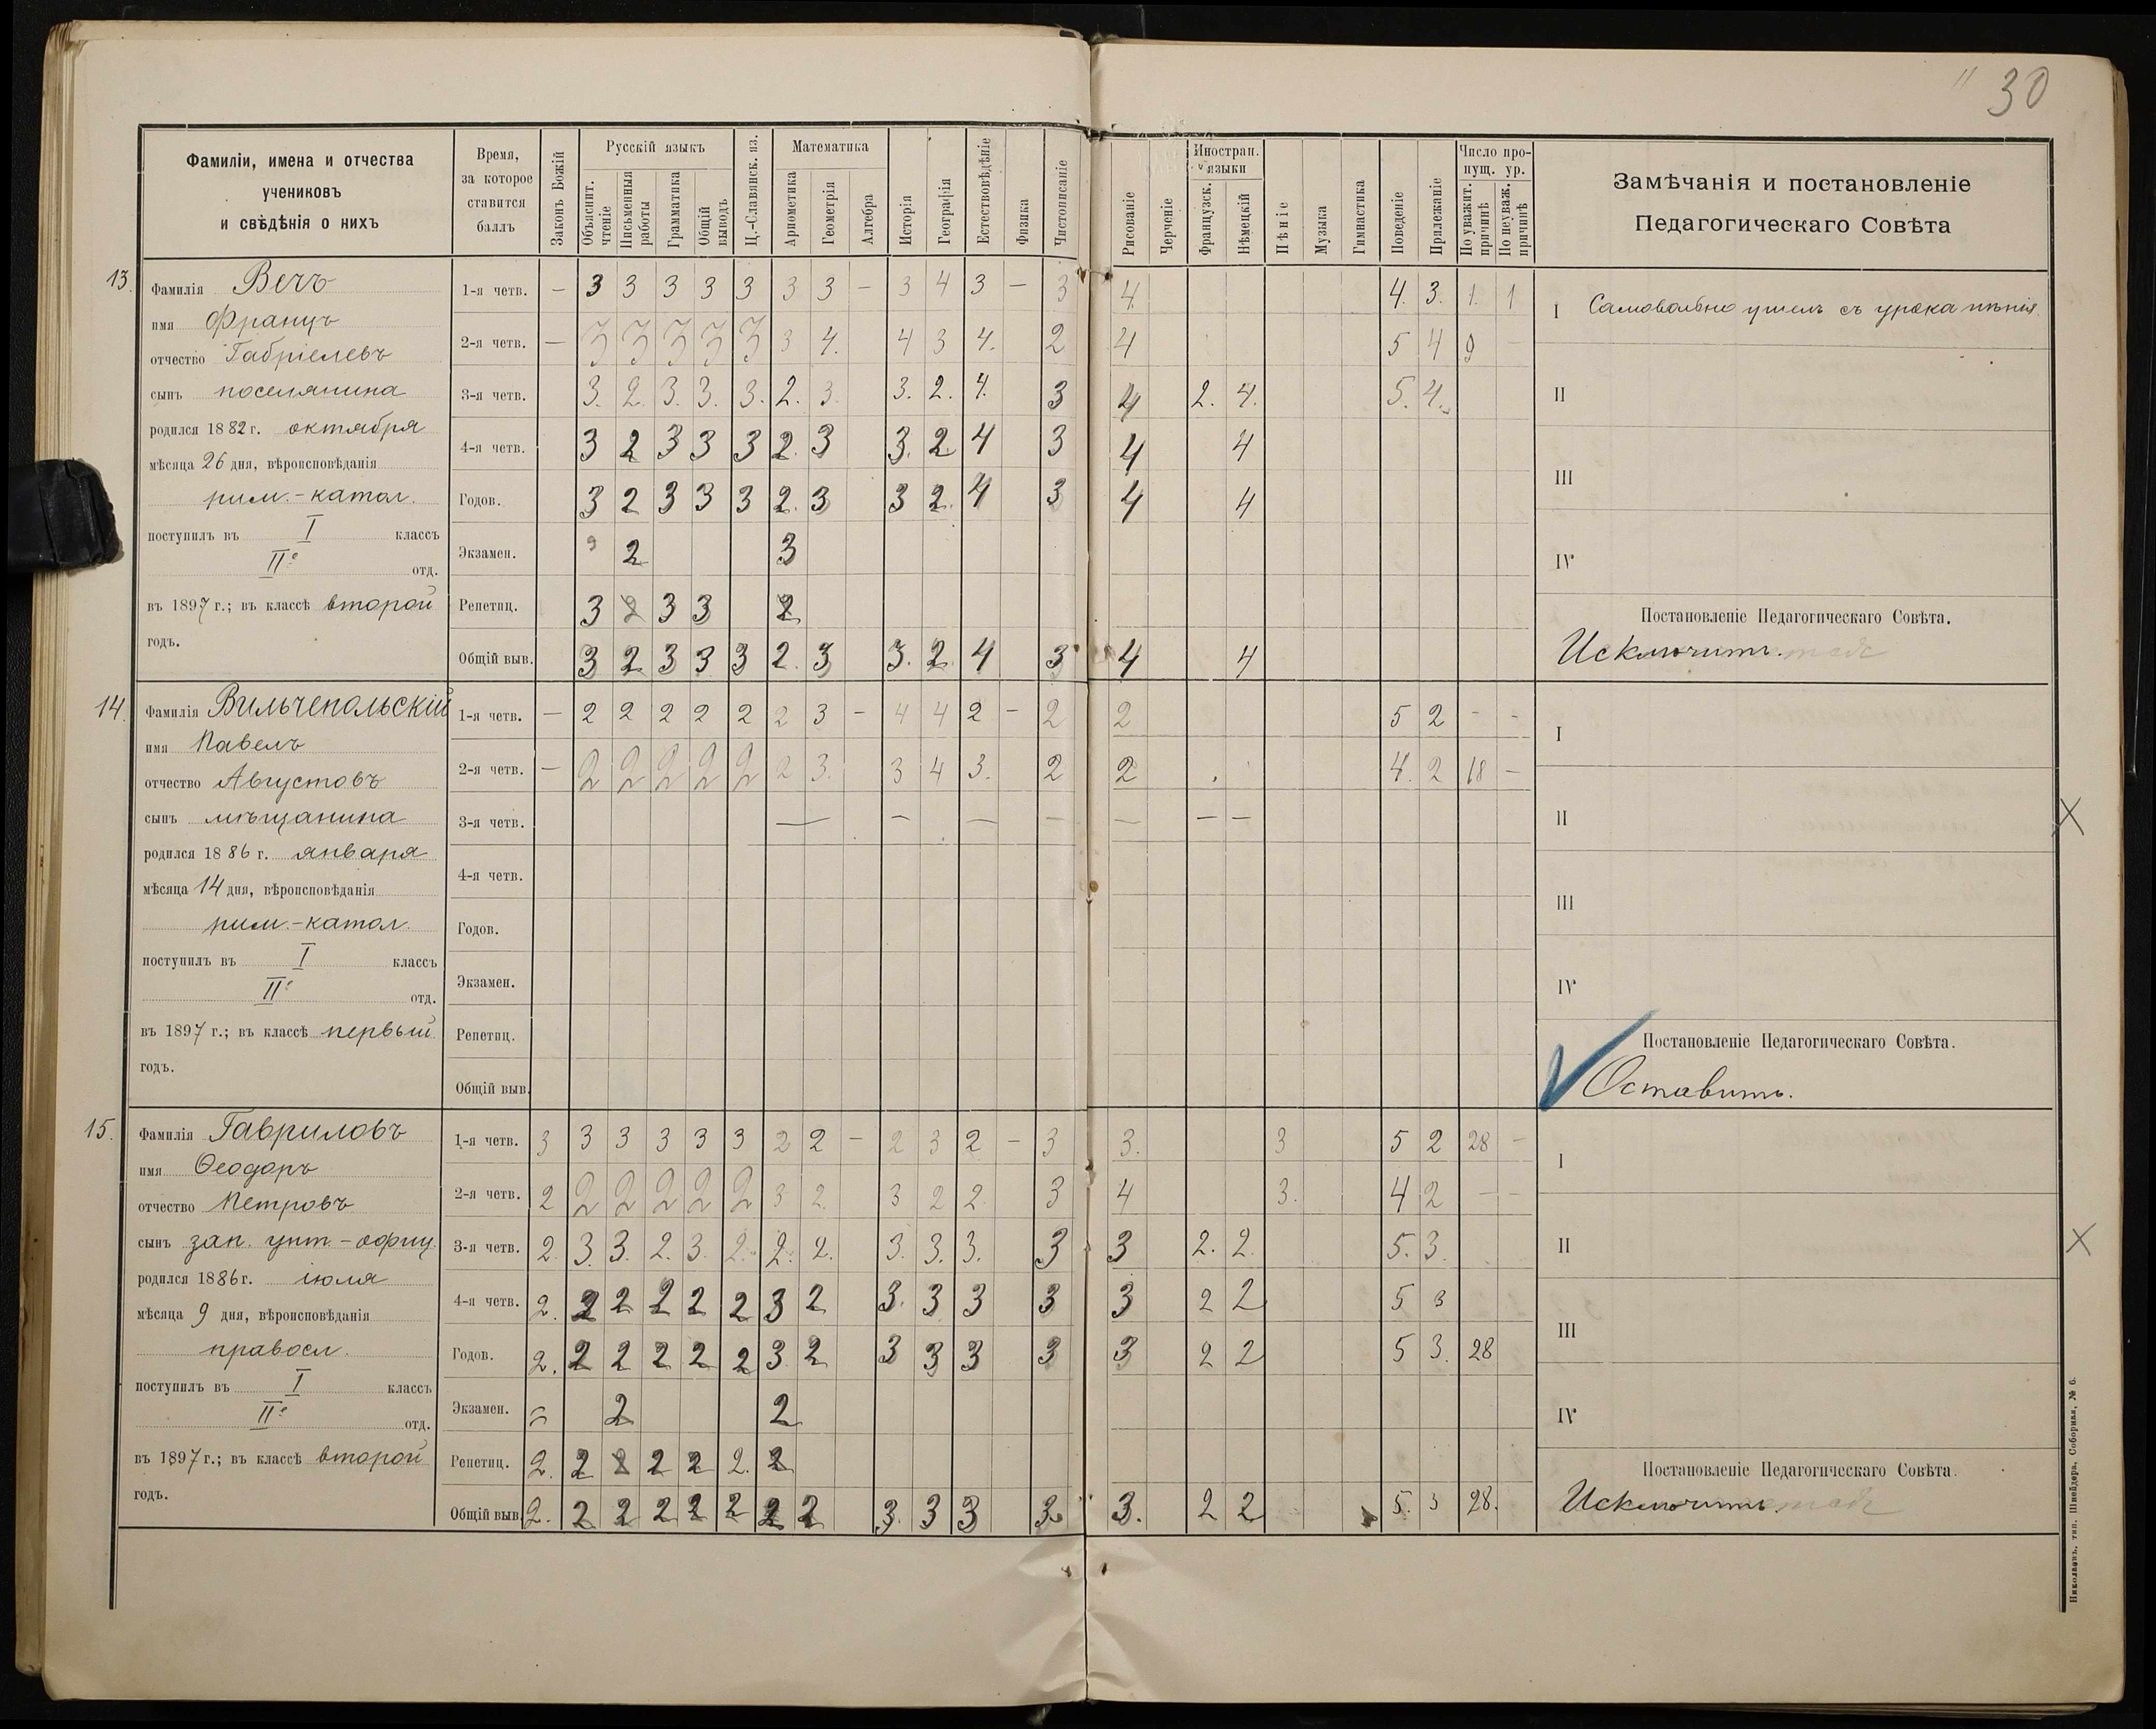 " 30
Фамиліи, имена и отчества учениковъ и свѣдѣнія о нихъ
Время, за которое ставится баллъ
Законъ Божій
Русскій языкъ
Объяснит. чтеніе
Письменныя работы
Грамматика
Общій выводъ
Ц.-Славянск. яз.
Математика
Ариѳметика
Геометрія
Алгебра
Исторія
Географія
Естествовѣдѣніе
Физика
Чистописаніе
Рисованіе
Черченіе
Иностран. языки
Французск.
Нѣмецкій
Пѣніе
Музыка
Гимнастика
Поведеніе
Прилежаніе
Число пропущ. ур.
По уважит. причинѣ
По неуваж. причинѣ
Замѣчанія и постановленіе
Педагогическаго Совѣта
13.
Фамилія Вечъ
имя Францъ
отчество Габріелевъ
сынъ поселянина
родился 1882 г. октября
мѣсяца 26 дня, вѣроисповѣданія
рим.-катол.
поступилъ въ I классъ
IIе отд.
въ 1897 г.; въ классѣ второй
годъ.
1-я четв. — 3 3 3 3 3 3 3 — 3 4 3 — 3 4. 4. 3. 1. 1
2-я четв. — 3 3 3 3 3 3 4. 4 3 4. 2 4 5 4 9 —
3-я четв. 3. 2. 3. 3. 3. 2. 3. 3. 2. 4. 3 4 2. 4. 5. 4.
4-я четв. 3 2 3 3 3 2. 3 3. 2. 4 3 4 4
Годов. 3 2 3 3 3 2. 3 3 2. 4 3 4 4
Экзамен. 2 3
Репетиц. 3 2 3 3 2
Общій выв. 3 2 3 3 3 2. 3 3. 2. 4 3 4 4
I Самовольно ушелъ съ урока пѣнія.
II
III
IV
Постановленіе Педагогическаго Совѣта.
Исключить.
14.
Фамилія Вильчепольскій
имя Павелъ
отчество Августовъ
сынъ мѣщанина
родился 1886 г. января
мѣсяца 14 дня, вѣроисповѣданія
рим.-катол.
поступилъ въ I классъ
IIе отд.
въ 1897 г.; въ классѣ первый
годъ.
1-я четв. — 2 2 2 2 2 2 3 — 4 4 2 — 2 2 5 2 - -
2-я четв. — 2 2 2 2 2 2 3. 3 4 3. 2 2 4. 2 18 —
3-я четв. — — — — — — —
4-я четв.
Годов.
Экзамен.
Репетиц.
Общій выв.
I
II
III
IV
Постановленіе Педагогическаго Совѣта.
Оставить.
15.
Фамилія Гавриловъ
имя Ѳеодоръ
отчество Петровъ
сынъ зап. унт.-офиц.
родился 1886 г. іюля
мѣсяца 9 дня, вѣроисповѣданія
правосл.
поступилъ въ I классъ
IIе отд.
въ 1897 г.; въ классѣ второй
годъ.
1-я четв. 3 3 3 3 3 3 2 2 — 2 3 2 — 3 3. 3 5 2 28 -
2-я четв. 2 2 2 2 2 2 3 2. 3 2 2. 3 4 3. 4 2 — -
3-я четв. 2. 3. 3. 2. 3. 2. 2. 2. 3. 3. 3. 3 3 2. 2. 5. 3.
4-я четв. 2. 2 2 2 2 2 3 2 3. 3 3 3 3 2 2 5 3
Годов. 2. 2 2 2 2 2 3 2 3 3 3 3 3 2 2 5 3. 28
Экзамен. = 2 2
Репетиц. 2. 2 2 2 2 2. 2
Общій выв. 2. 2 2 2 2 2 2 2 3. 3 3 3 3. 2 2 5. 3 28.
I
II
III
IV
Постановленіе Педагогическаго Совѣта.
Исключить.
Николаевъ, тип. Шнейдера, Соборная, № 6.